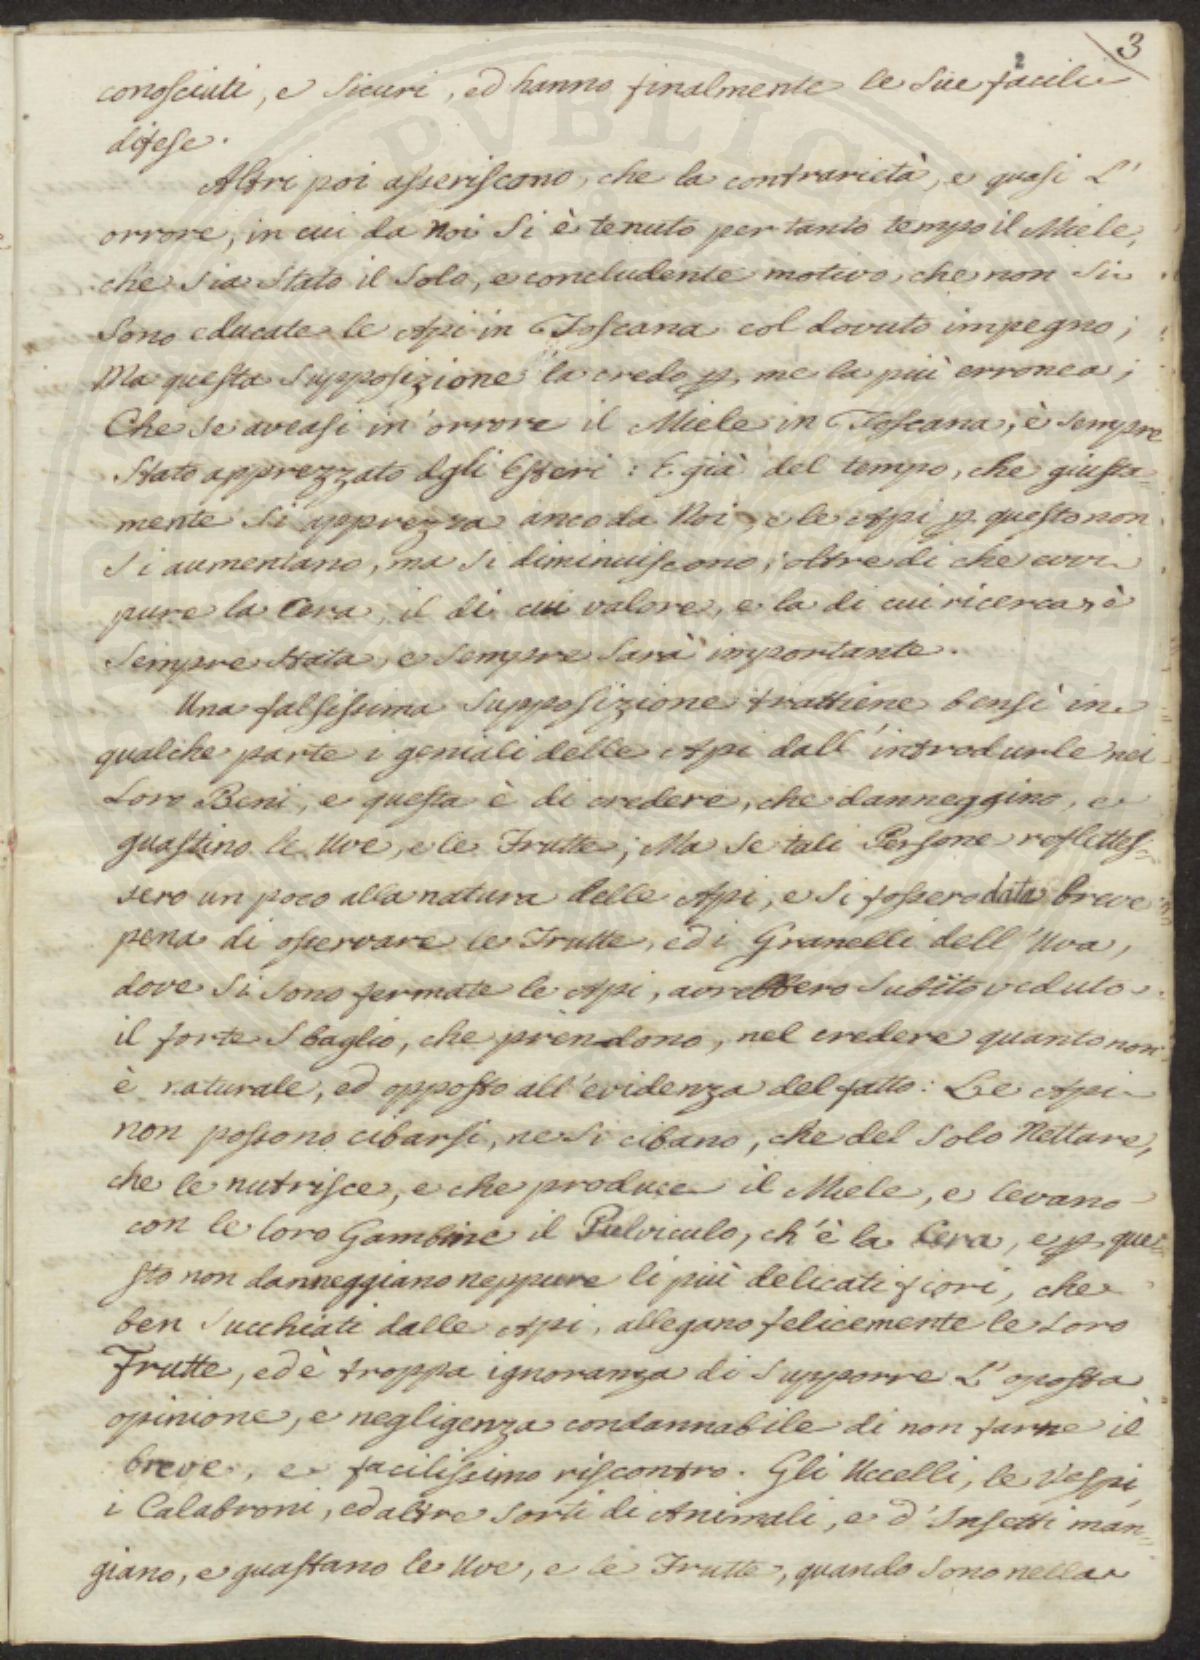 3
2
conosciuti, e sicuri, ed hanno finalmente le sue facili
difese.
Altri poi asseriscono, che la contrarietà, e quasi L'
orrore, in cui da Noi si è tenuto per tanto tempo il Miele,
che sia stato il solo, e concludente motivo, che non si
sono educate le Api in Toscana col dovuto impegno;
Ma questa supposizione la credo p. me la più erronea;
Che se aveasi in orrore il Miele in Toscana, è sempre
stato apprezzato dgli Esteri: E già del tempo, che giusta-
mente si apprezza anco da Noi, e le Api p. questo non
si aumentano, ma si diminuiscono; oltre di che evvi
pure la Cera, il di cui valore, e la di cui ricerca, è
sempre stata, e sempre sarà importante.
Una falsissima supposizione trattiene bensì in
qualche parte i geniali delle Api dall'introdurle nei
Loro Beni, e questa è di credere, che danneggino, e
guastino le Uve, e le Frutte; Ma se tali Persone reflettes=
sero un poco alla natura delle Api, e si fossero data breve
pena di osservare le Frutte, ed i Granelli dell'Uva,
dove si sono fermate le Api, avrebbero subito veduto
il forte sbaglio, che prendono, nel credere quanto non
è naturale, ed opposto all'evidenza del fatto: Le Api
non possono cibarsi, ne si cibano, che del solo Nettare,
che le nutrisce, e che produce il Miele, e levano
con le loro Gambine il Pulviculo, ch'è la Cera, e p. que=
sto non danneggiano neppure li più delicati fiori, che
ben succhiati dalle Api, allegano felicemente le Loro
Frutte, ed è troppa ignoranza di supporre L'oposta
opinione, e negligenza condannabile di non farne il
breve, e facilissimo riscontro. Gli Uccelli, le Vespi,
i Calabroni, ed altre sorti di Animali, e d'Insetti man=
giano, e guastano le Uve, e le Frutte, quando sono nella